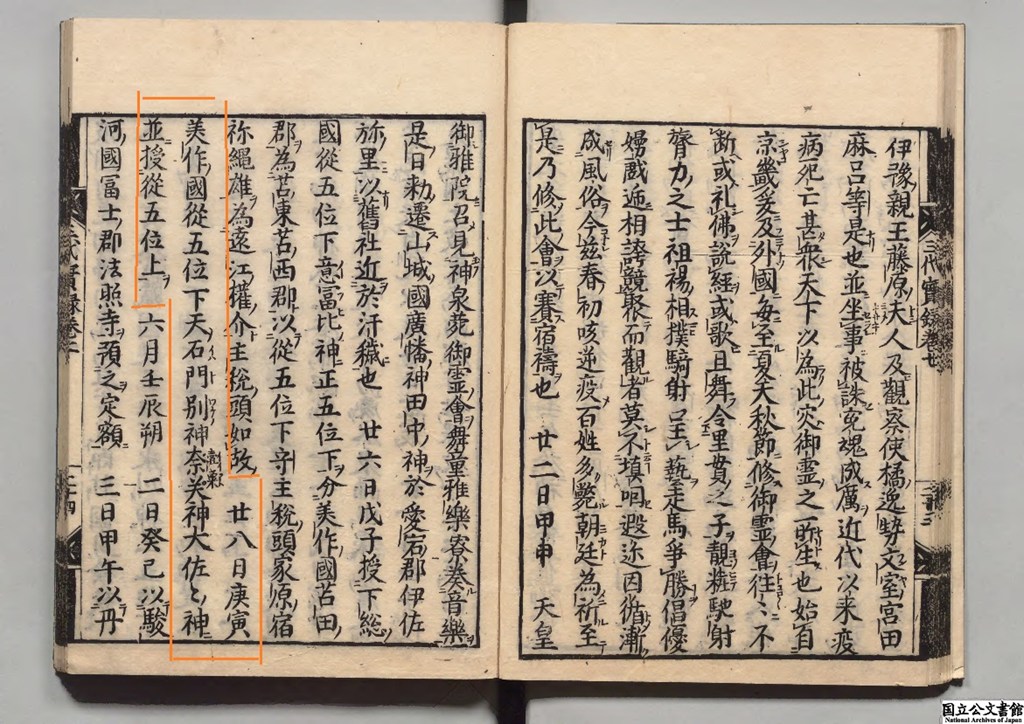 伊豫親王藤原夫人及觀察使橘逸勢文室宮田
麻呂等是也並坐事被誅寃魂成厲近代以来疫
病死亡甚衆天下以為此灾御靈之所生也始自
京畿爰及外國毎至夏天秋節修御靈會往々不
断或礼佛說經或歌且舞令里貫之子靚粧馳射
膂力之士祖裼相撲騎射呈藝走馬爭勝倡優
嫚戲逓相誇競聚而觀者莫不填咽遐迩因循漸
成風俗今兹春初咳逆疫百姓多斃朝廷為祈至
是乃修此會以賽宿禱也 廿二日甲申 天皇
三代實録巻七
御雅院召見神泉菀御霊會舞童雅樂寮奏音樂
是日勅遷山城國廣幡神田中神於愛宕郡伊佐
弥里以舊社近於汙穢也 廿六日戊子授下総
國從五位下意冨比神正五位下分美作國苫田
郡為苫東苫西郡以從五位下守主稅頭家原宿
祢縄雄為遠江權介主稅頭如故 廿八日庚寅
美作國從五位下天石門別神奈关神大佐々神
並授從五位上 六月壬辰朔 二日癸巳以駿
河國冨士郡法照寺預之定額 三日甲午以丹
国立公文書館
National Archives of Japan